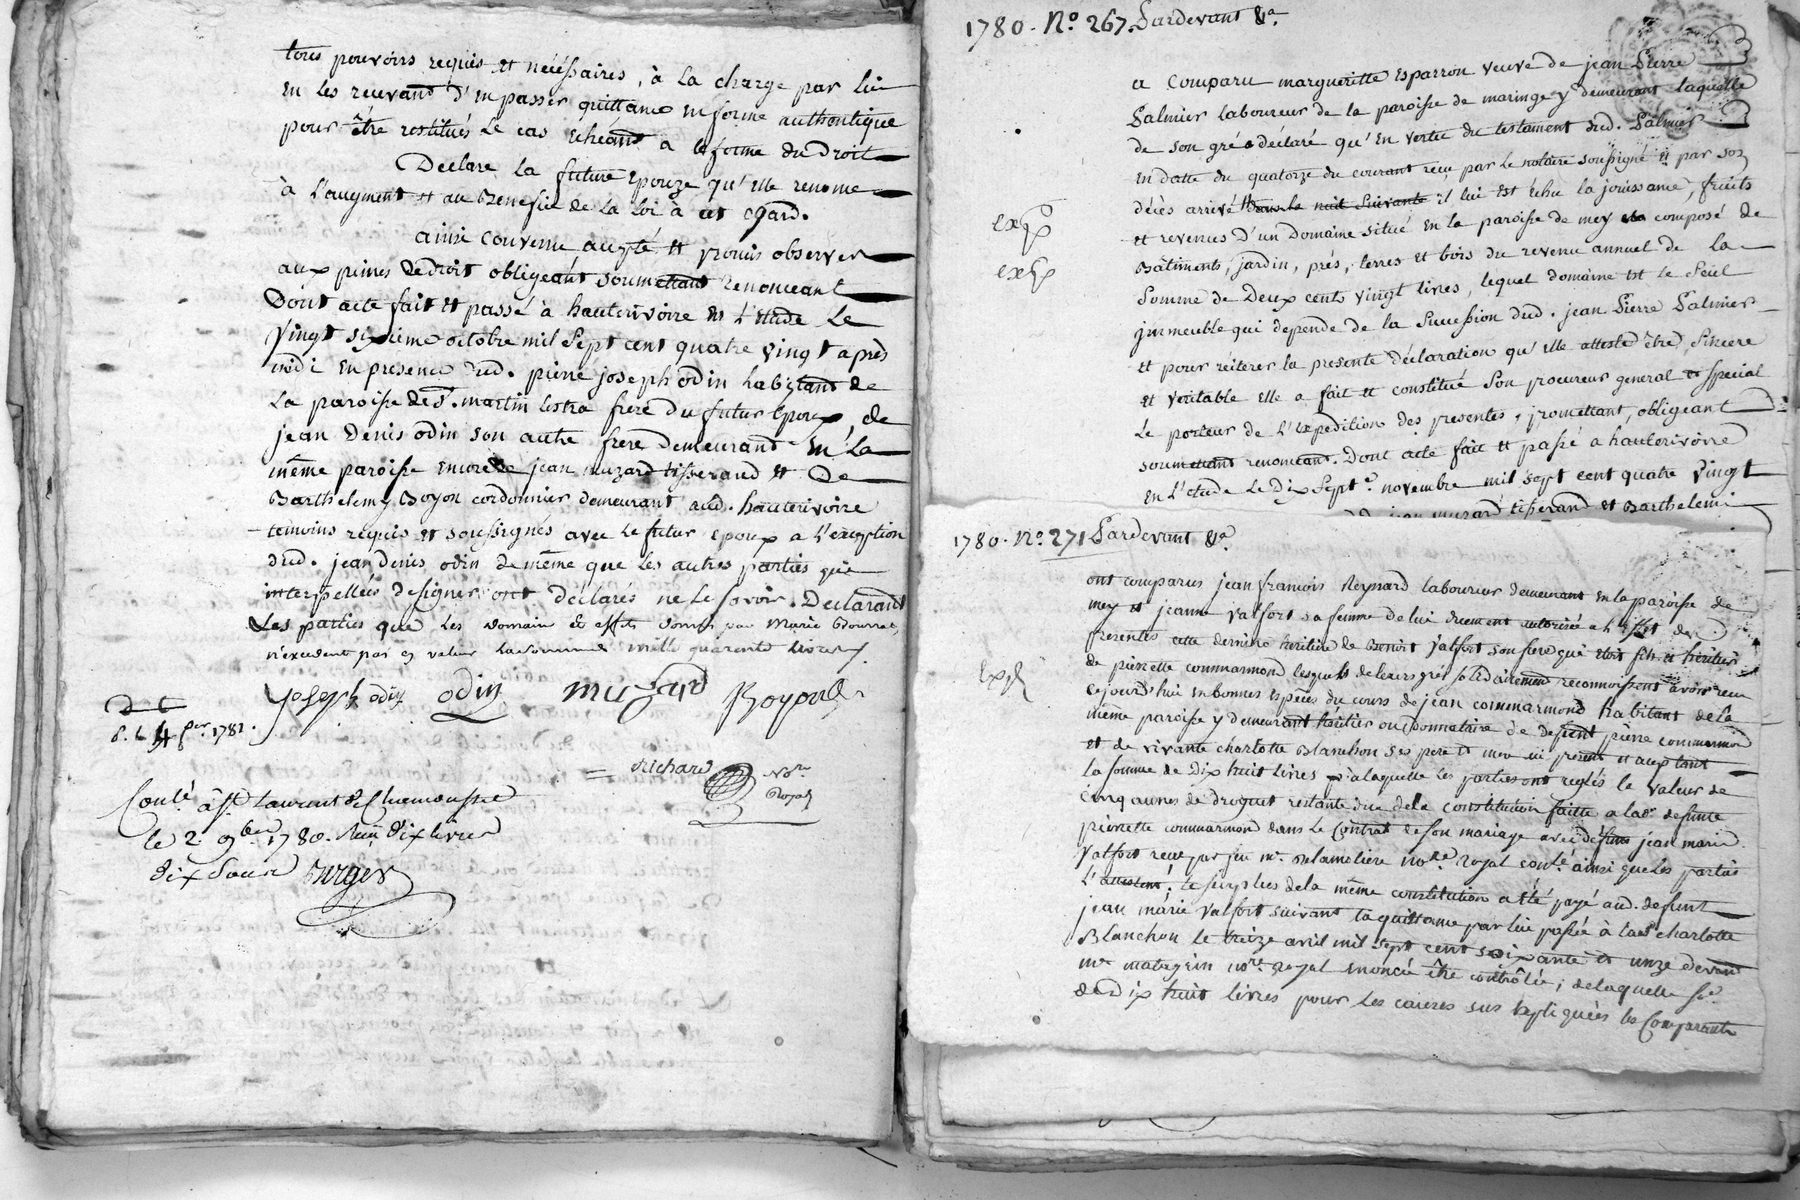 tous pouvoirs requis et nécéssaires, à la charge par lui
en les recevant d'en passer quittance en forme authentique
pour être restitués le cas echéant a la forme du Droit
Declare la future epouze qu'elle renonce
à L'augment et au Benefice de la loi à cet egard.
ainsi convenu accepté et promis observer
aux peines de droit obligeant soumettant renonceant
Dont acte fait et passé à hauterivoire en l'etude le
vingt sixieme octobre mil sept cent quatre vingt après
midi en presence dud. pierre joseph odin habitant de
la paroisse de st. martin lestra frere du futur epoux, de
jean denis odin son autre frere demeurant en la
même paroisse encore de jean muzard tisserand et de
Barthelemy Boyon cordonnier demeurant aud. hauterivoire
temoins requis et soussignés avec le futur epoux a l'exception
dud. jean denis odin de même que les autres parties qui
interpellées de signer ont déclarés ne le savoir. Declarant
Les parties que les
n'excedent pas en valeur la somme mille quarante livres
joseph odin odin muzard Boyon
D C
1781.
richard
Nore
Royal
Conlé à St Laurent de Chamousset
le 2 9bre 1780. Reçu dix livres
dix sous Burger
1780. No. 267. Pardevant &a.
a comparu margueritte Esparron veuve de jean Pierre
Palmier laboureur de la paroisse de maringe y demeurant laquelle
de son gré a déclaré qu'en vertu du testament dud. Palmier
en datte du quatorze du courant reçu par le notaire soussigné et par son
décès arrivé dans la nuit suivante il lui est échu la jouissance, fruits
et revenus d'un Domaine situé en la paroisse de mey composé de
Bâtiments, jardin, prés, terres et bois du revenu annuel de la
somme de Deux cents vingt livres, lequel domaine est le seul
immeuble qui depende de la succession dud. jean Pierre Palmier
et pour réiterer la presente déclaration qu'elle atteste être sincere
et veritable elle a fait et constitué son procureur general et special
le porteur de l'expedition des presentes, promettant, obligeant
soumettant renonceant. Dont acte fait et passé a hauterivoire
en l'etude le dix septe. novembre mil sept cent quatre vingt
jean muzard tisserand et Barthelemi
1780. No. 271 Pardevant &a.
ont comparus jean francois Reynard laboureur demeurant en la paroisse de
mey et jeanne Valfort sa femme de lui duement autorisée a l'effet des
presentes cette derniere heritiere de Benoit Valfort son frere qui etoit fils et heritier
de pierrette commarmond lesquels de leurs grés solidairement reconnoissent avoir reçu
cejourd'hui en bonnes espèces du cours de jean commarmond habitant de la
même paroisse y demeurant héritier ou Donnataire de defunt pierre commarmond
et de vivante charlotte Blanchon ses pere et mere ici present et acceptant
la somme de dix huit livres a laquelle les parties ont reglés la valeur de
cinq aunes de droguet restante due de la constitution faitte a lad. defunte
pierrette commarmond dans le contrat de son mariage avec defunt jean marie
Valfort reçu par feu me. Delameliere nore royal conlé ainsi que les parties
l'attestent; le surplus de la même constitution a été payé aud. defunt
jean marie Valfort suivant la quittance par lui passée à lad. charlotte
Blanchon le treize avril mil sept cent soixante et unze devant
me matagrin nore royal enoncée être contrôlée; de laquelle se.
de dix huit livres pour les causes sus expliquées les Comparants